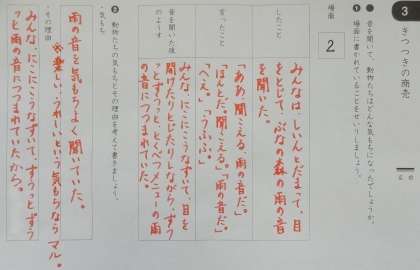 3
きつつきの商売
● 音を聞いて、動物たちはどんな気もちになったでしょうか。
❶ 場面に書かれていることをせいりしましょう。
場面
2
したこと
みんなは、しいんとだまって、目
をとじて、ぶなの森の雨の音
を聞いた。
言ったこと
「ああ、聞こえる、雨の音だ。」
「ほんとだ。聞こえる。」「雨の音だ。」
「へえ。」「うふふ。」
音を聞いた後
のようす
みんな、にこにこうなずいて、目を
開けたりとじたりしながら、ずう
っとずうっと、とくべつメニューの雨
の音につつまれていた。
❷ 動物たちの気もちとその理由を考えて書きましょう。
・気もち
雨の音を気もちよく聞いていた。
※楽しい、うれしいという気もちなら マル。
・その理由
みんな、にこにこうなずいて、ずうっとずう
っと雨の音につつまれていたから。